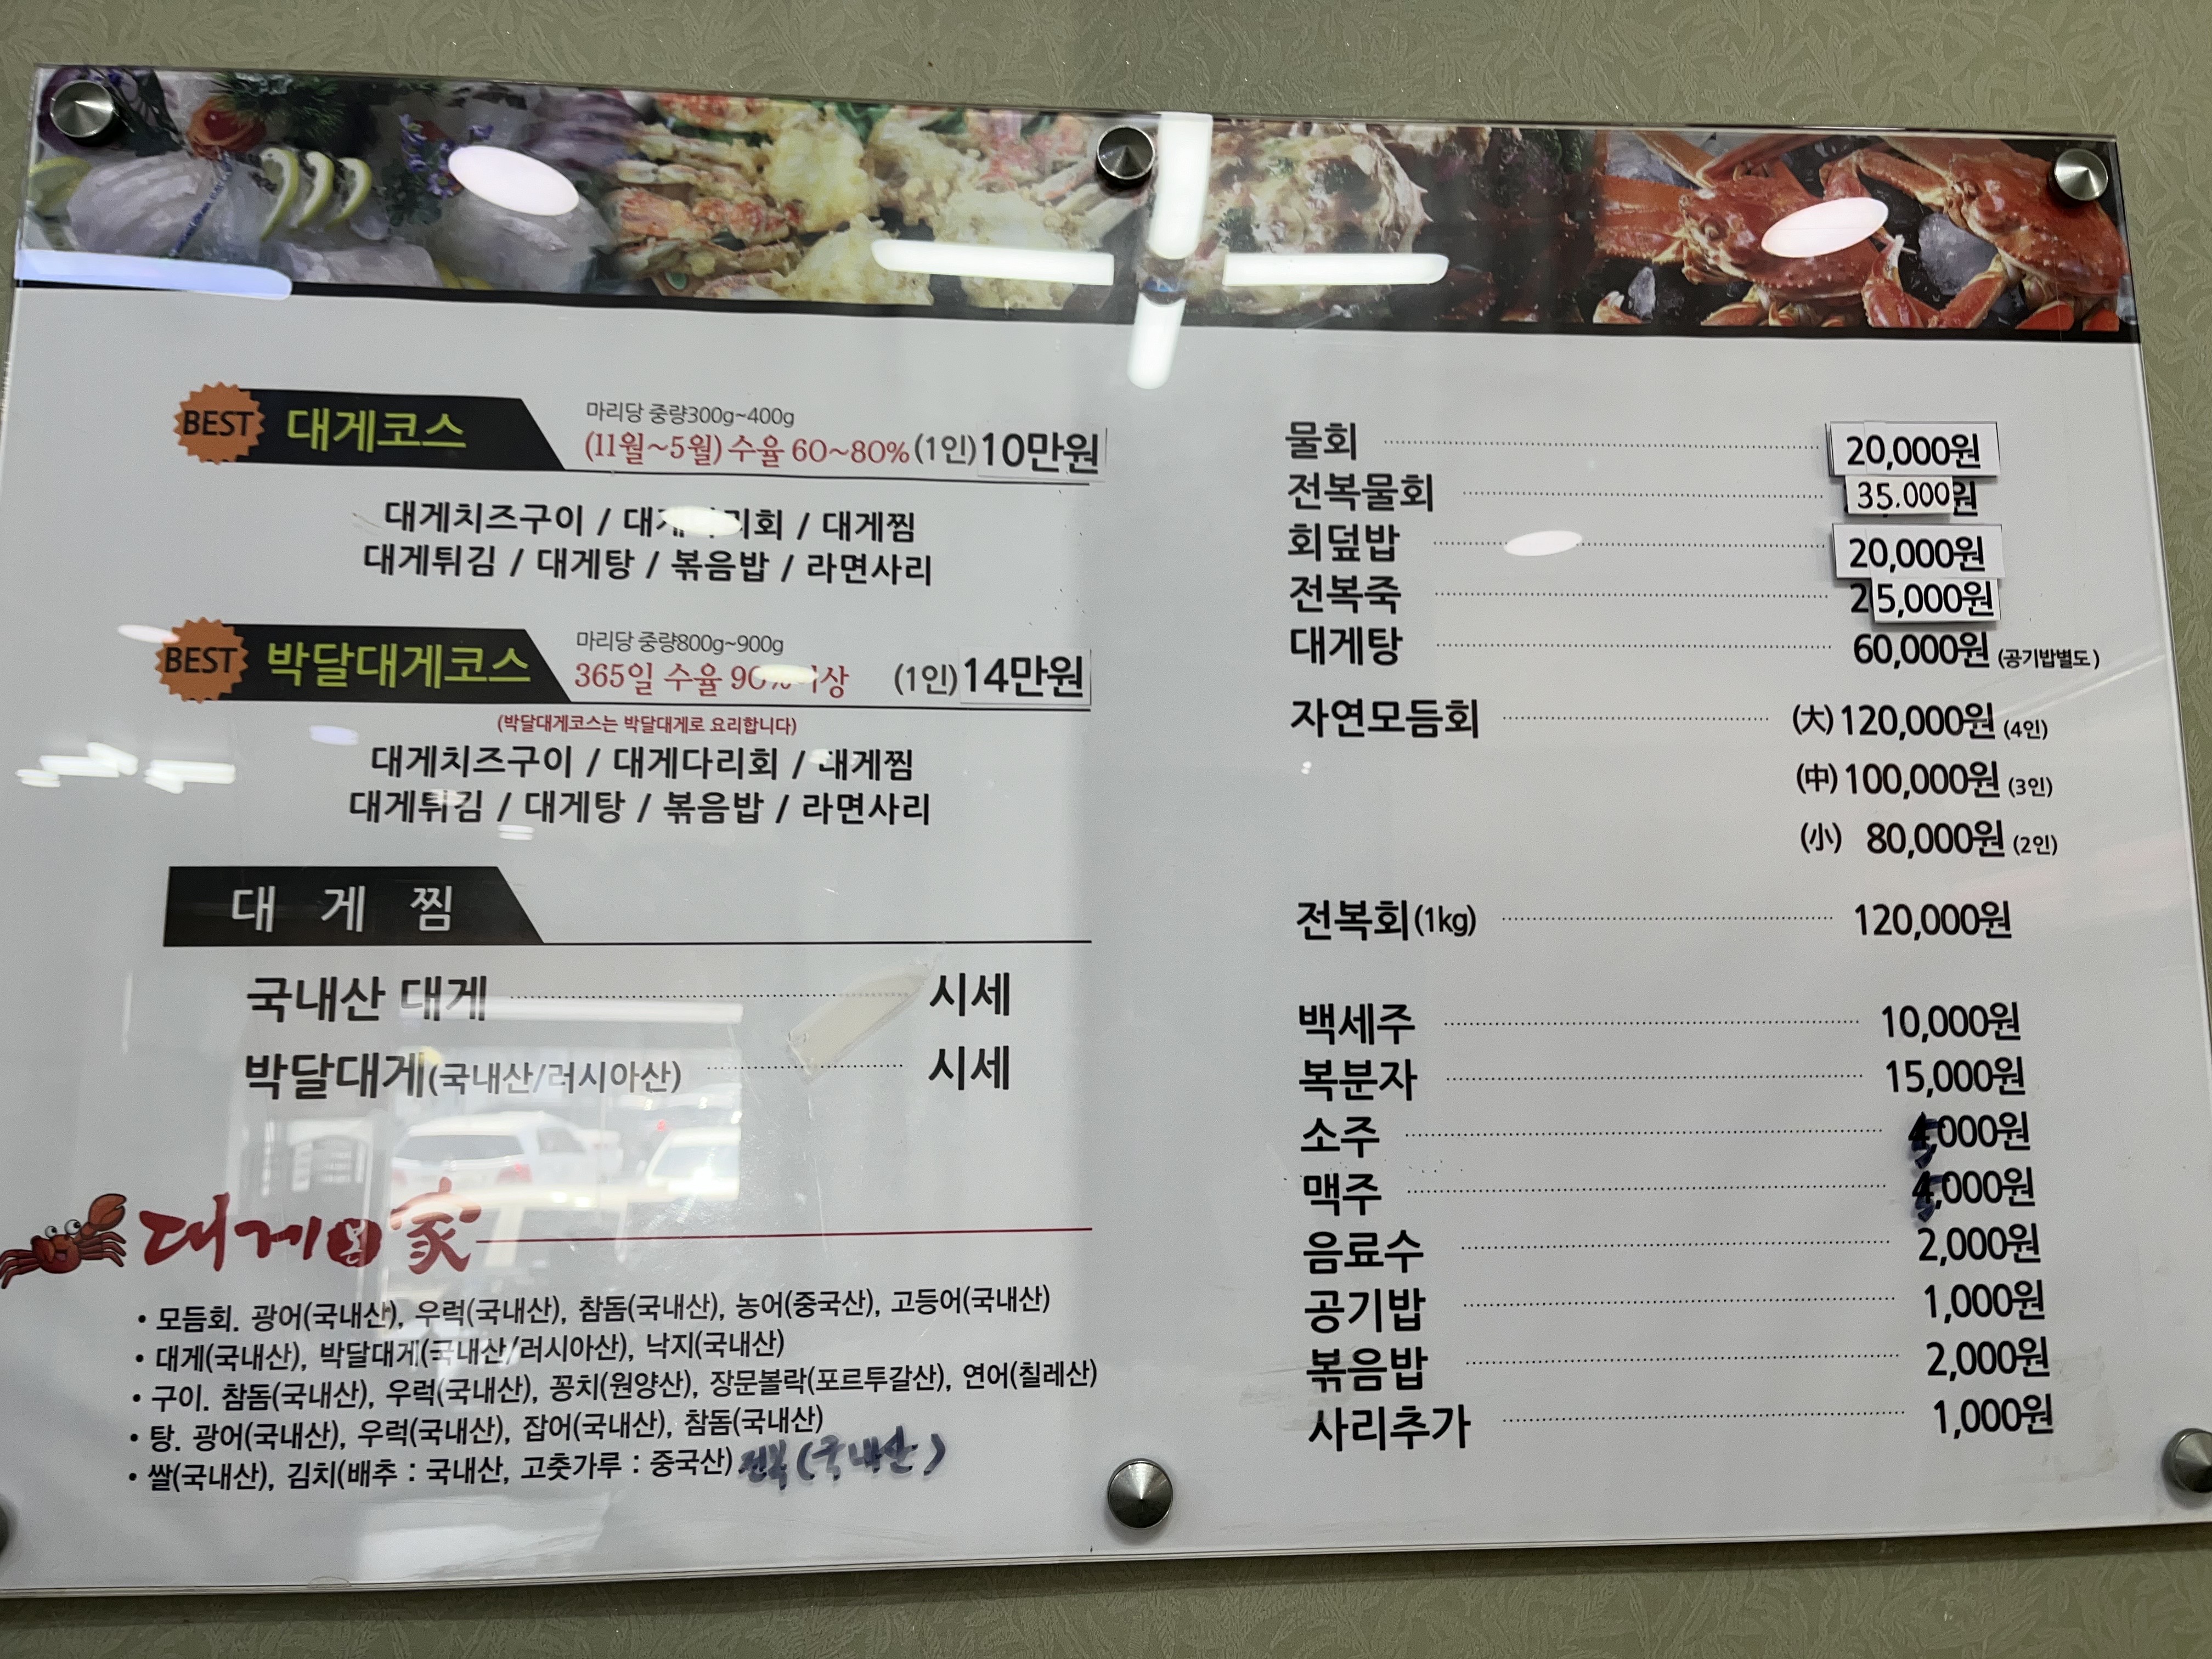 BEST 대게코스
마리당 중량300g~400g
(11월~5월) 수율 60~80% (1인) 10만원
대게치즈구이 / 대게다리회 / 대게찜
대게튀김 / 대게탕 / 볶음밥 / 라면사리
BEST 박달대게코스
마리당 중량800g~900g
365일 수율 90%이상 (1인) 14만원
(박달대게코스는 박달대게로 요리합니다)
대게치즈구이 / 대게다리회 / 대게찜
대게튀김 / 대게탕 / 볶음밥 / 라면사리
대 게 찜
국내산 대게 시세
박달대게(국내산/러시아산) 시세
대게의 家
• 모듬회. 광어(국내산), 우럭(국내산), 참돔(국내산), 농어(중국산), 고등어(국내산)
• 대게(국내산), 박달대게(국내산/러시아산), 낙지(국내산)
• 구이. 참돔(국내산), 우럭(국내산), 꽁치(원양산), 장문볼락(포르투갈산), 연어(칠레산)
• 탕. 광어(국내산), 우럭(국내산), 잡어(국내산), 참돔(국내산)
• 쌀(국내산), 김치(배추 : 국내산, 고춧가루 : 중국산) 전복(국내산)
물회 20,000원
전복물회 35.000원
회덮밥 20,000원
전복죽 25,000원
대게탕 60,000원 (공기밥별도)
자연모듬회 (大) 120,000원 (4인)
(中) 100,000원 (3인)
(小) 80,000원 (2인)
전복회(1kg) 120,000원
백세주 10,000원
복분자 15,000원
소주 5,000원
맥주 5,000원
음료수 2,000원
공기밥 1,000원
볶음밥 2,000원
사리추가 1,000원